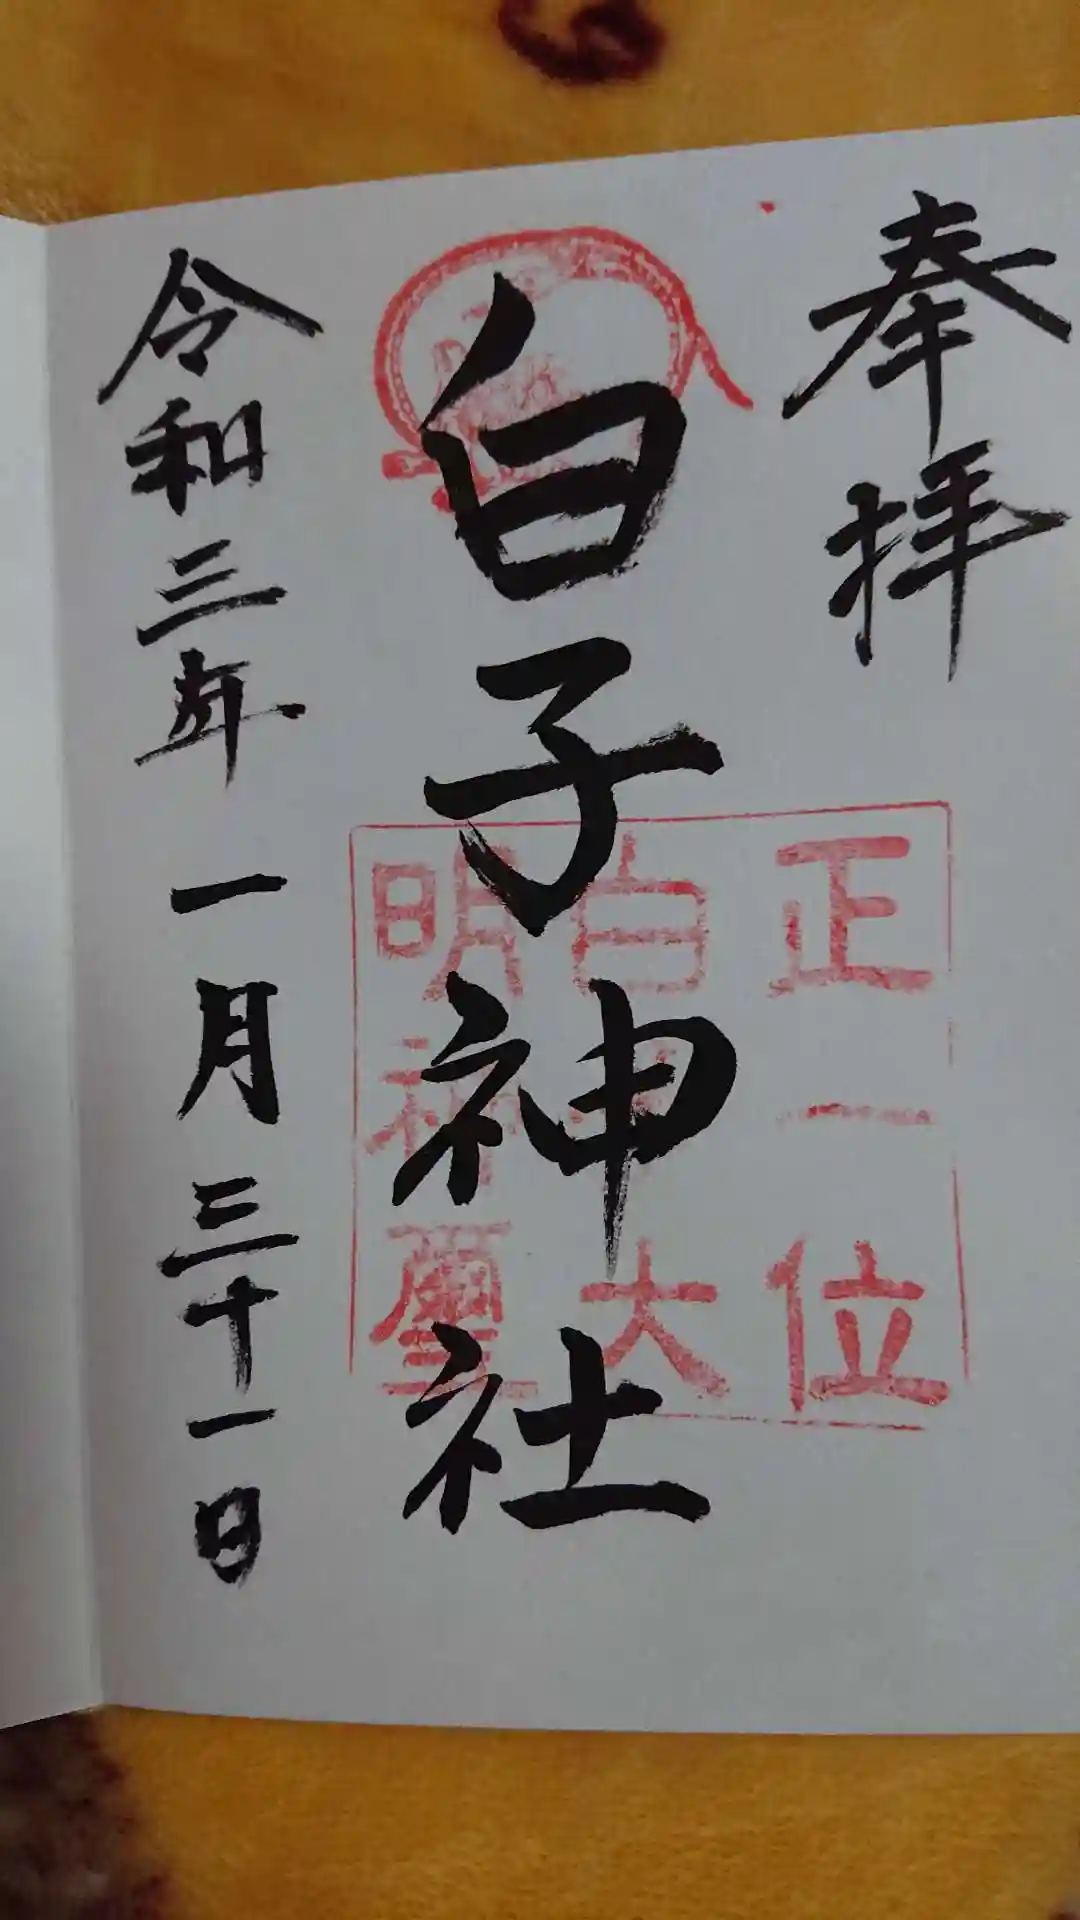 奉拝
白子神社
正一位
白子大
明神璽
令和三年一月三十一日